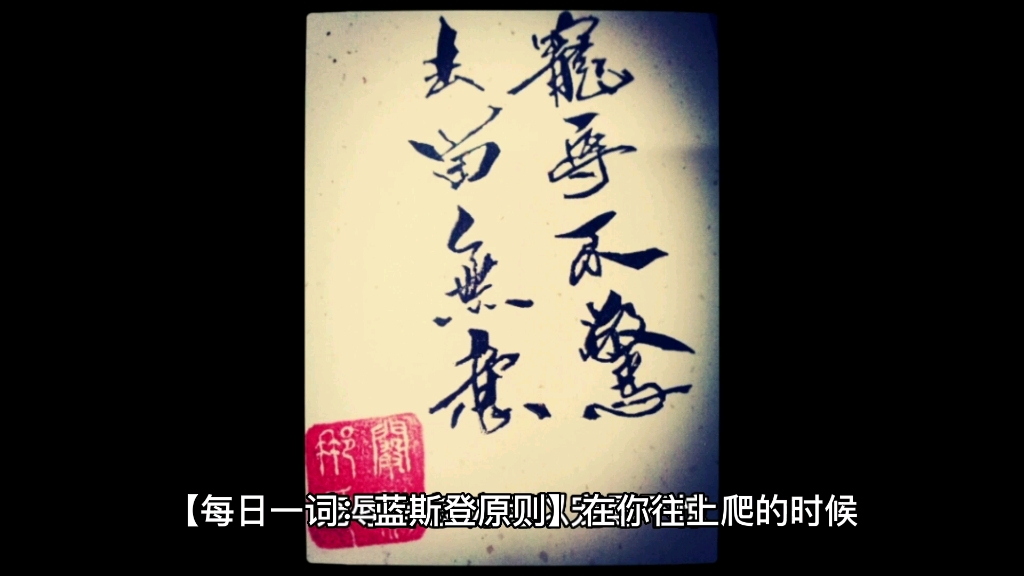 寵辱不驚
去留無意
【每日一词：蓝斯登原则】在你往上爬的时候